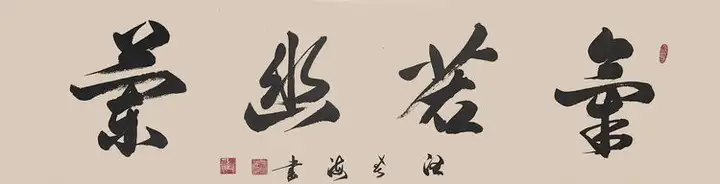 氣若幽蘭
海書